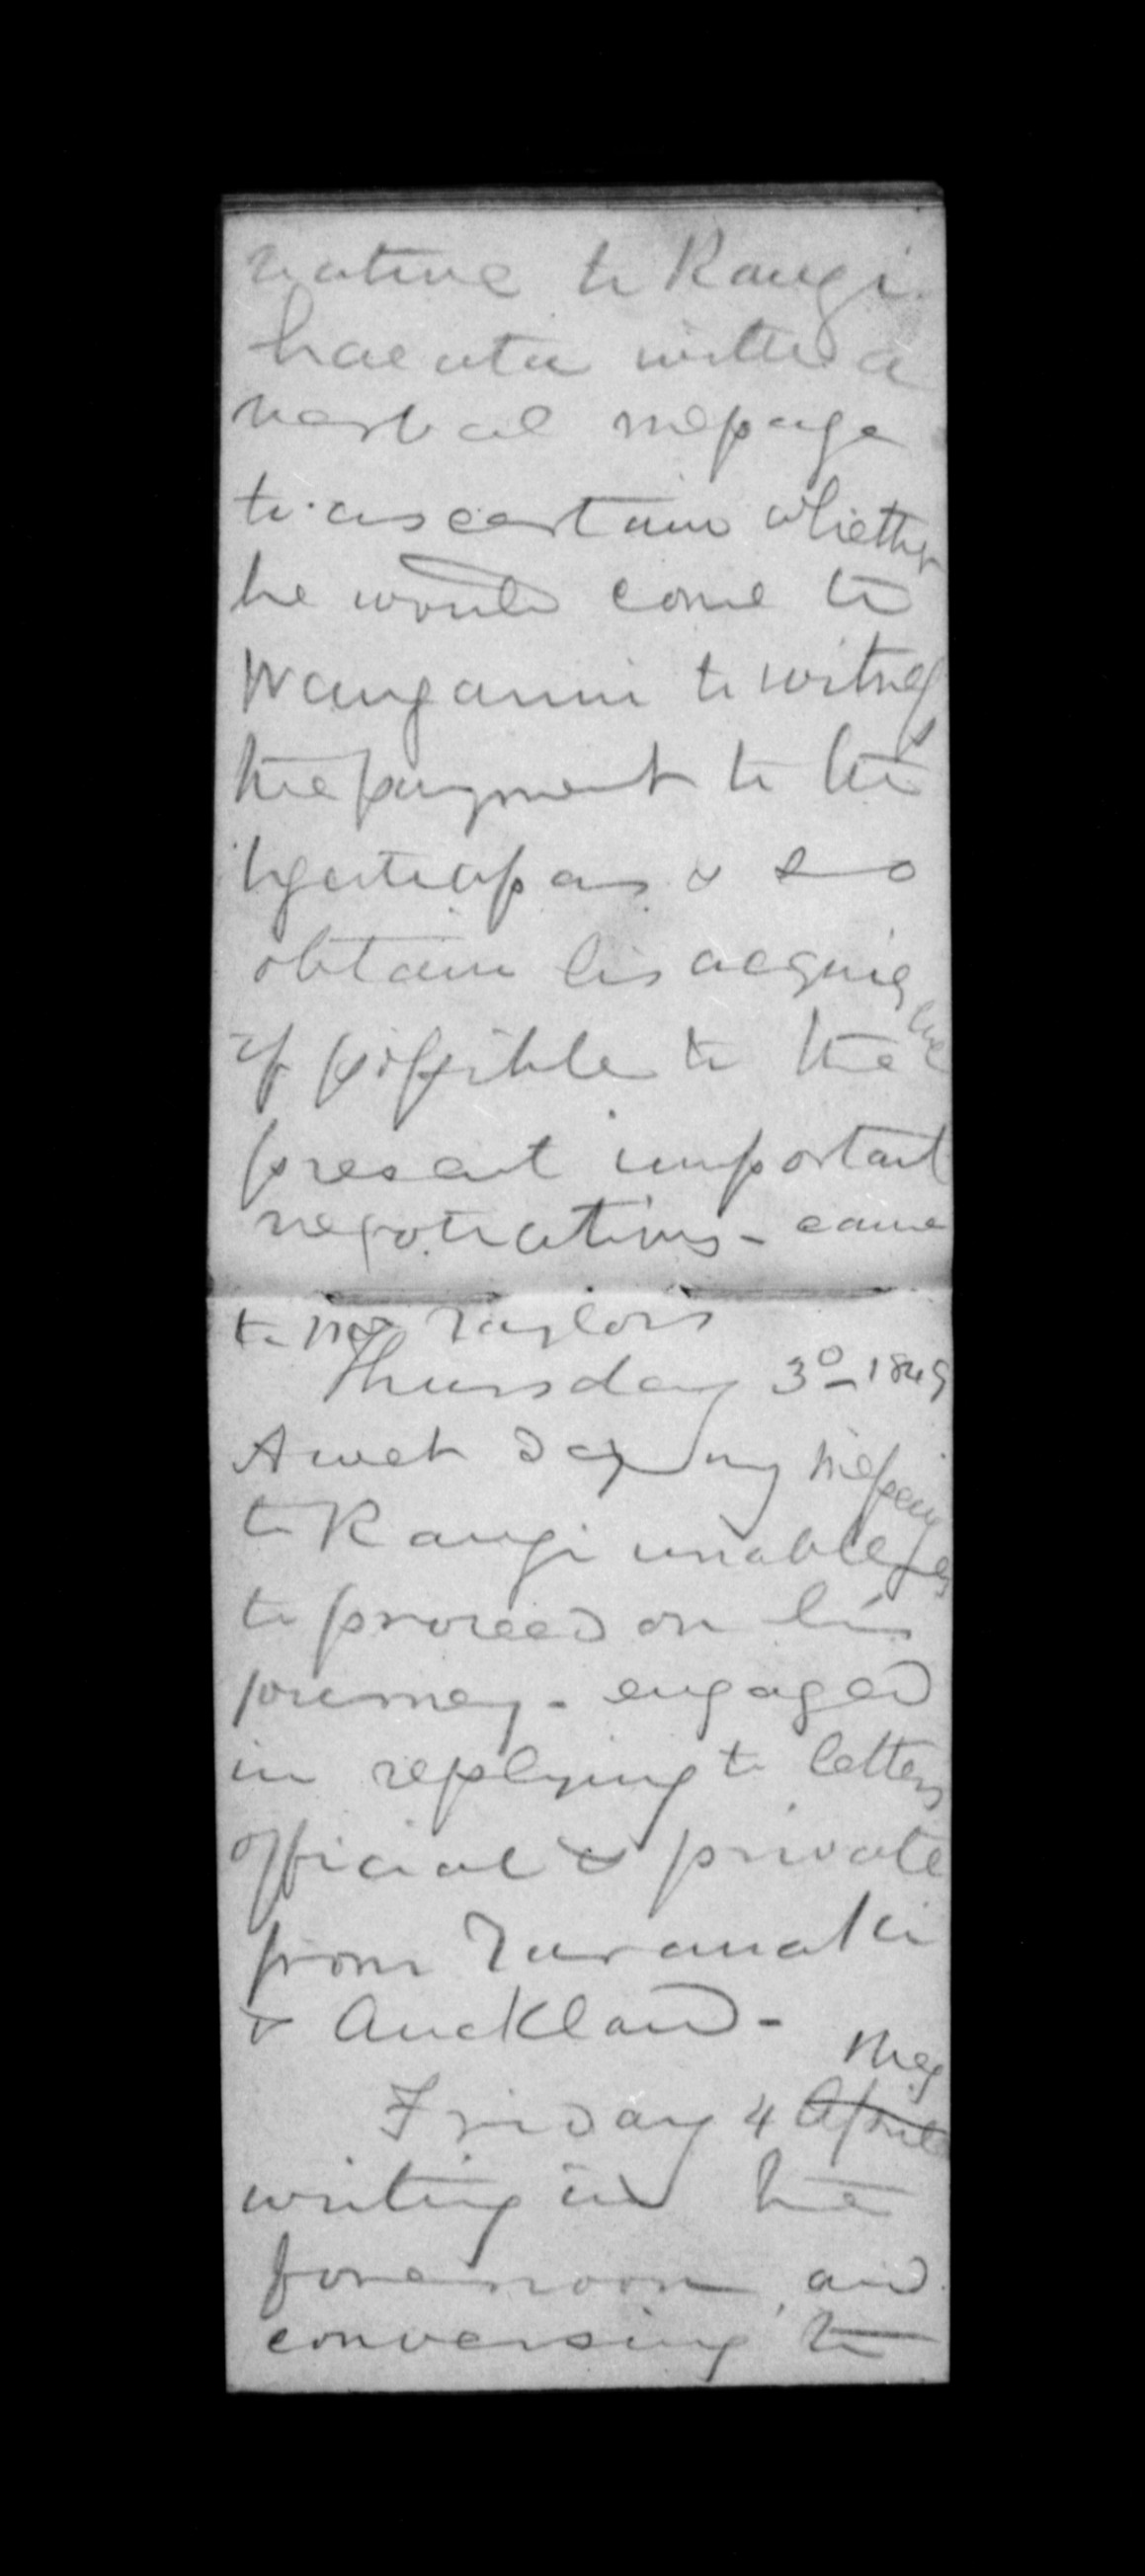 native to Rangi
haeata with a
verbal message
to ascertain whether
he would come to
Wanganui to witness
the payment to the
Ngatiapas & so
obtain his acquiesence
if possible to the
present important
negotiations - came
to Mr Taylors
Thursday 3d 1849
A wet day my messenger
to Rangi unable
to proceed on his
journey - engaged
in replying to letters
official & private
from Taranaki
& Auckland -
Friday 4 April May
writing in the
forenoon, and
conversing to